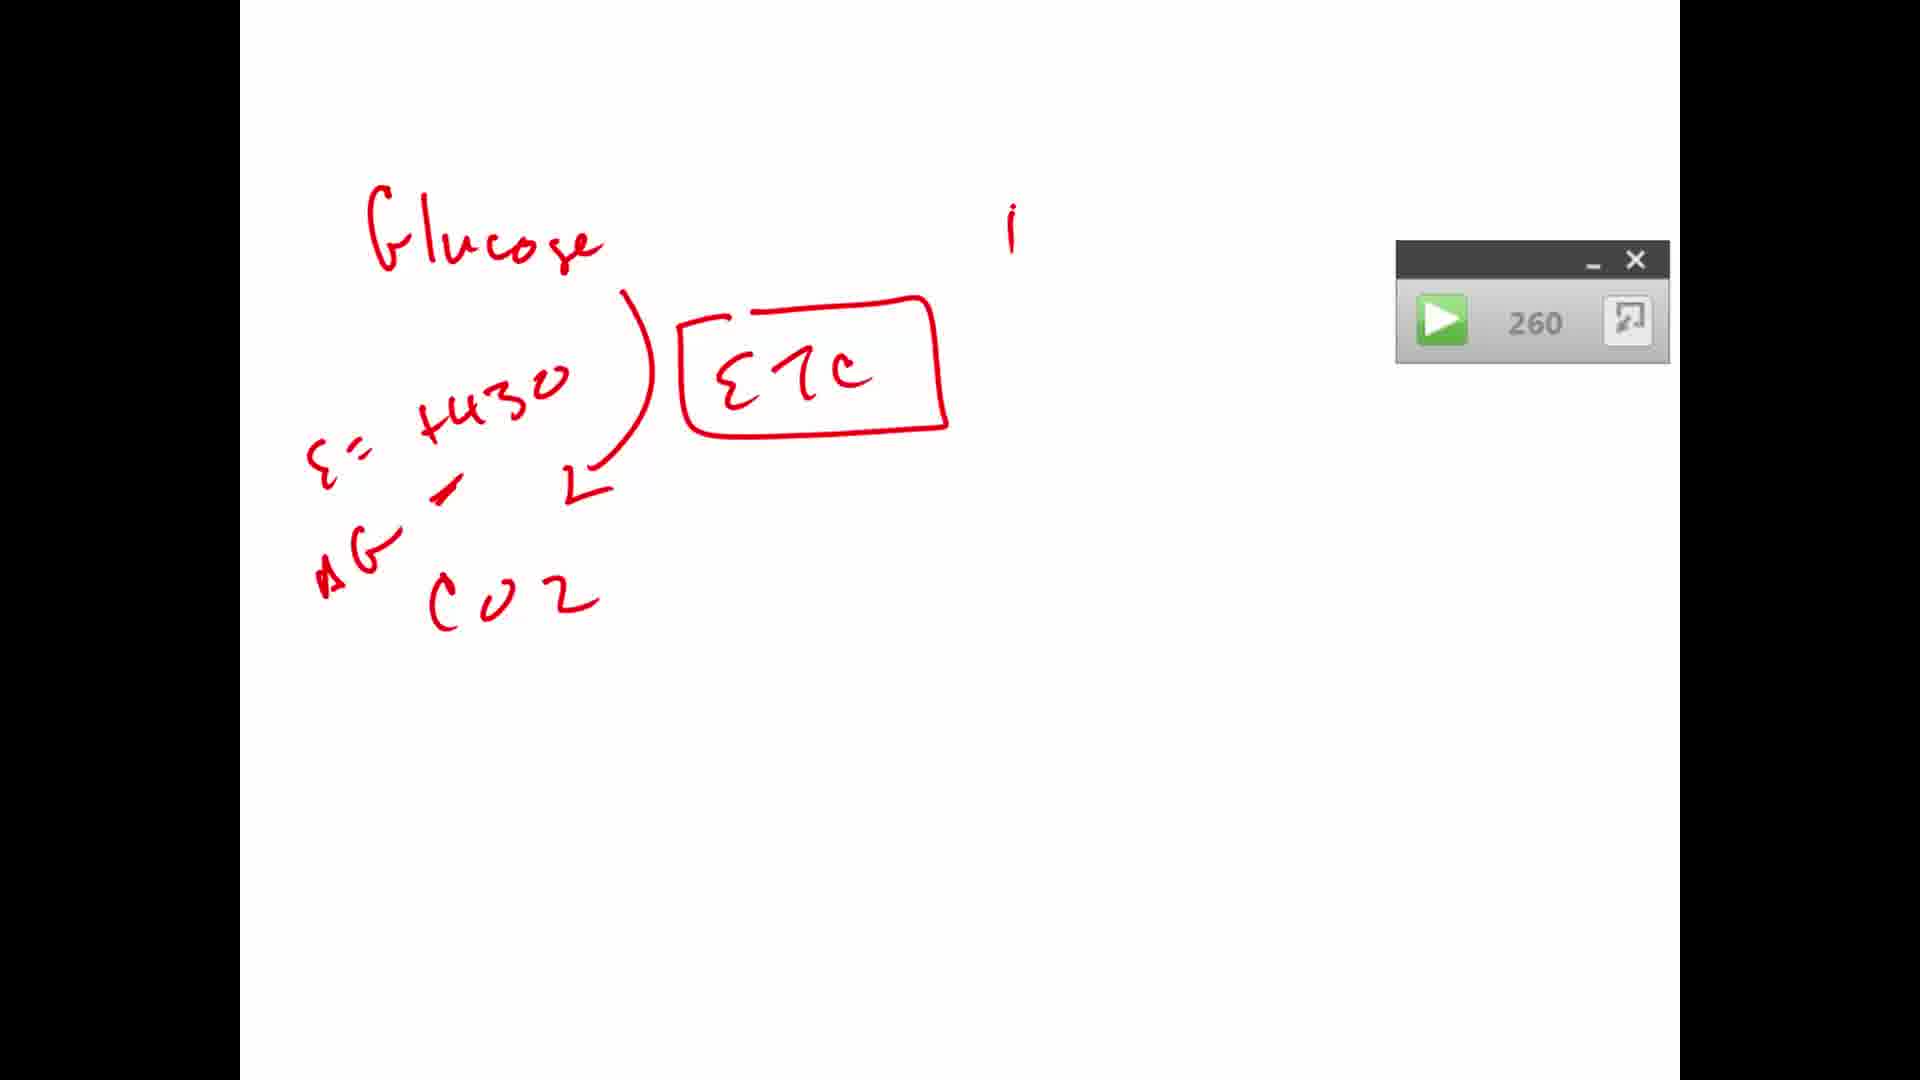 Glucose
ETC
ε= +430
ΔG -
CO2
260